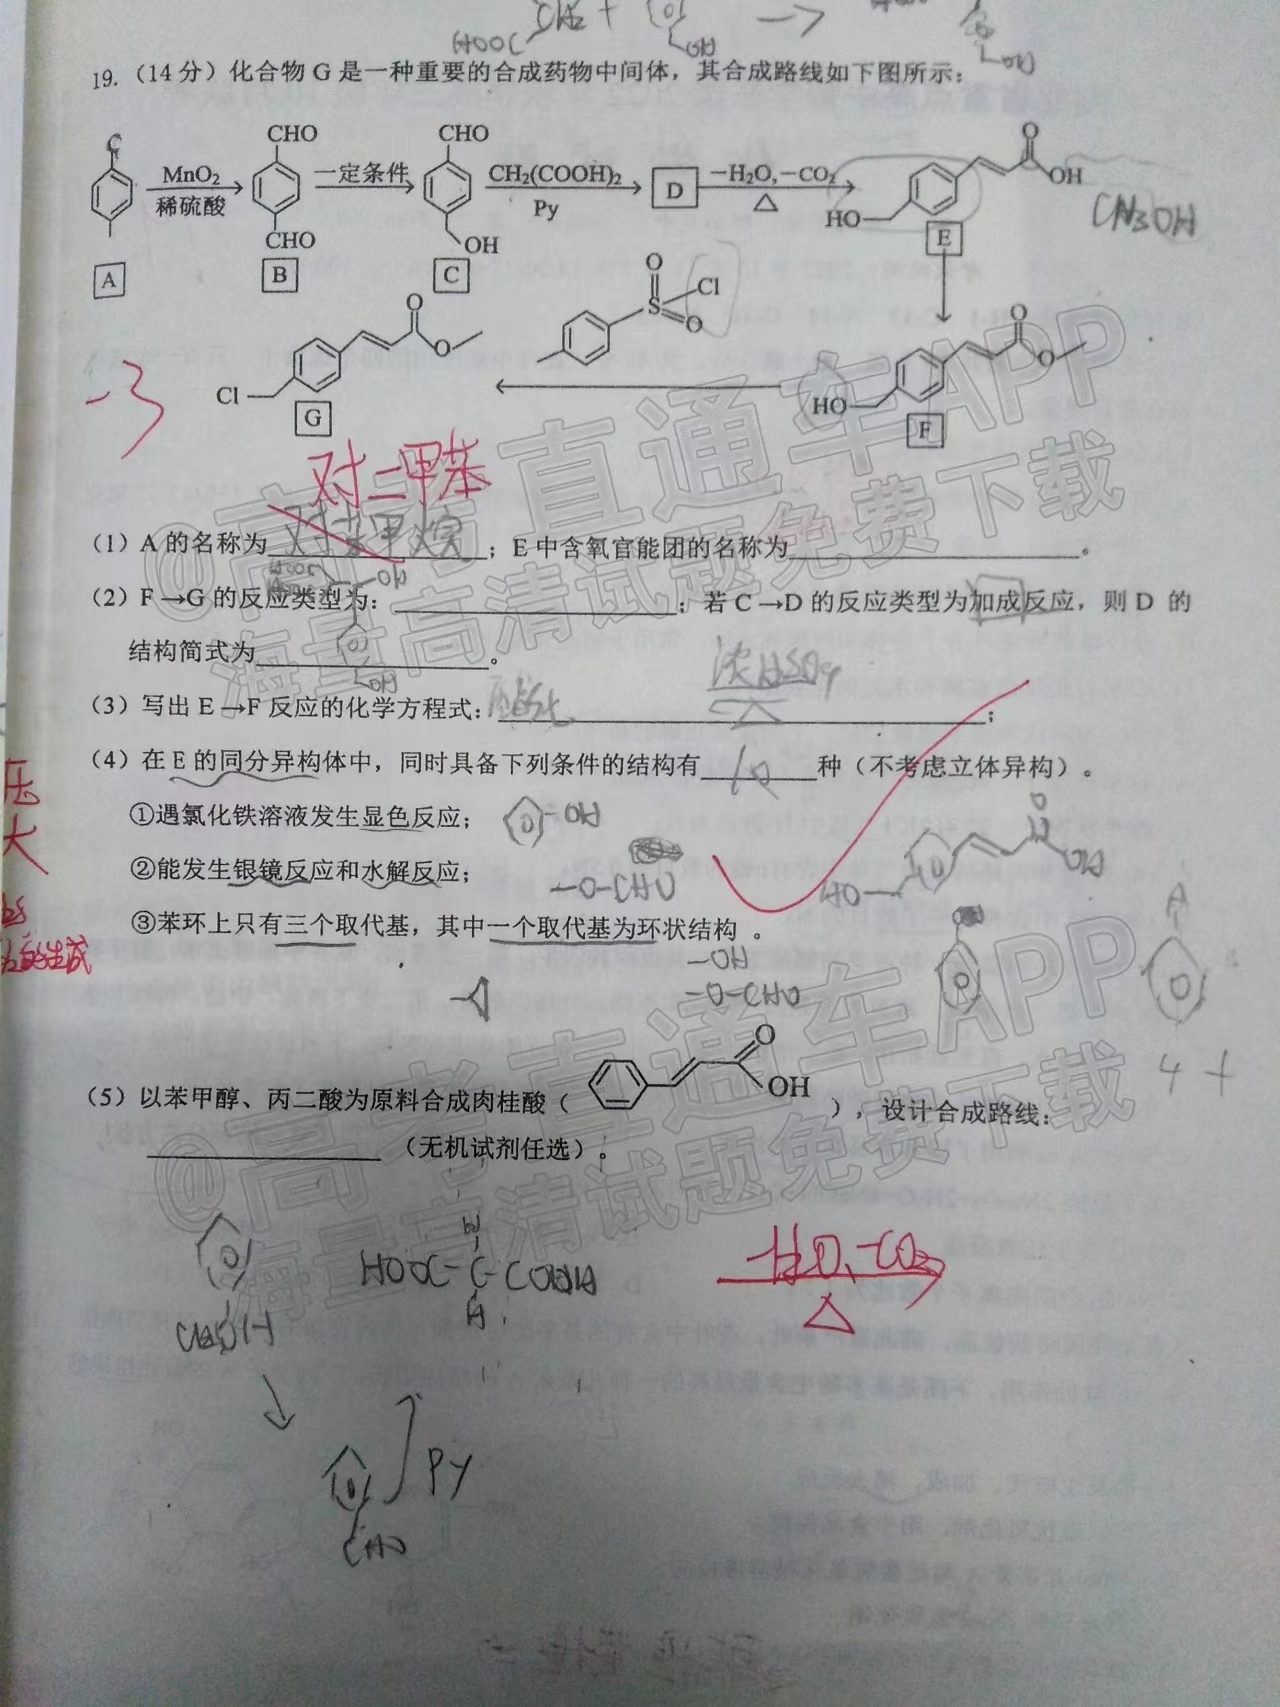 HOOC CH2 +
19. （14 分）化合物 G 是一种重要的合成药物中间体，其合成路线如下图所示：
CHO CHO
MnO2 稀硫酸 一定条件 CH2(COOH)2 Py D －H2O,－CO2 △ O OH HO
CHO OH
A B C E
CH3OH
O S O Cl
O O Cl G
O O HO F
-3
对二甲苯
（1）A 的名称为 对苯甲烷 ；E 中含氧官能团的名称为 。
（2）F→G 的反应类型为： ；若 C→D 的反应类型为加成反应，则 D 的
结构简式为 。
OH
（3）写出 E→F 反应的化学方程式： 酯化 浓H2SO4 △ ；
（4）在 E 的同分异构体中，同时具备下列条件的结构有 10 种（不考虑立体异构）。
①遇氯化铁溶液发生显色反应； -OH
②能发生银镜反应和水解反应； -O-CHO
HO O OH
③苯环上只有三个取代基，其中一个取代基为环状结构 。
-OH
-O-CHO
A
4 +
（5）以苯甲醇、丙二酸为原料合成肉桂酸（ O OH ），设计合成路线：
（无机试剂任选）。
HOOC-C-COOH
H
H
CH2OH
-H2O、-CO2
△
Py
CHO
@高考直通车APP
海量高清试题免费下载
@高考直通车APP
海量高清试题免费下载